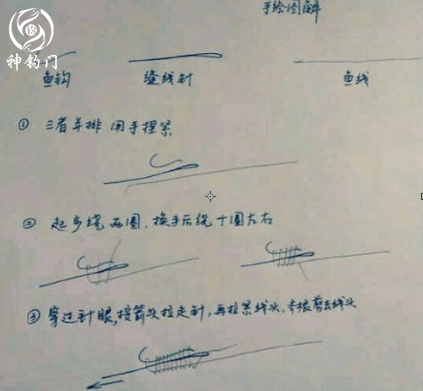 手绘图解
神钓门
鱼钩 缝线针 鱼线
① 三者并排 用手捏紧
② 起步绕五圈,换手后绕十圈左右
③ 穿过针眼,按箭头拉走针,再拉紧线头,齐根剪去线头